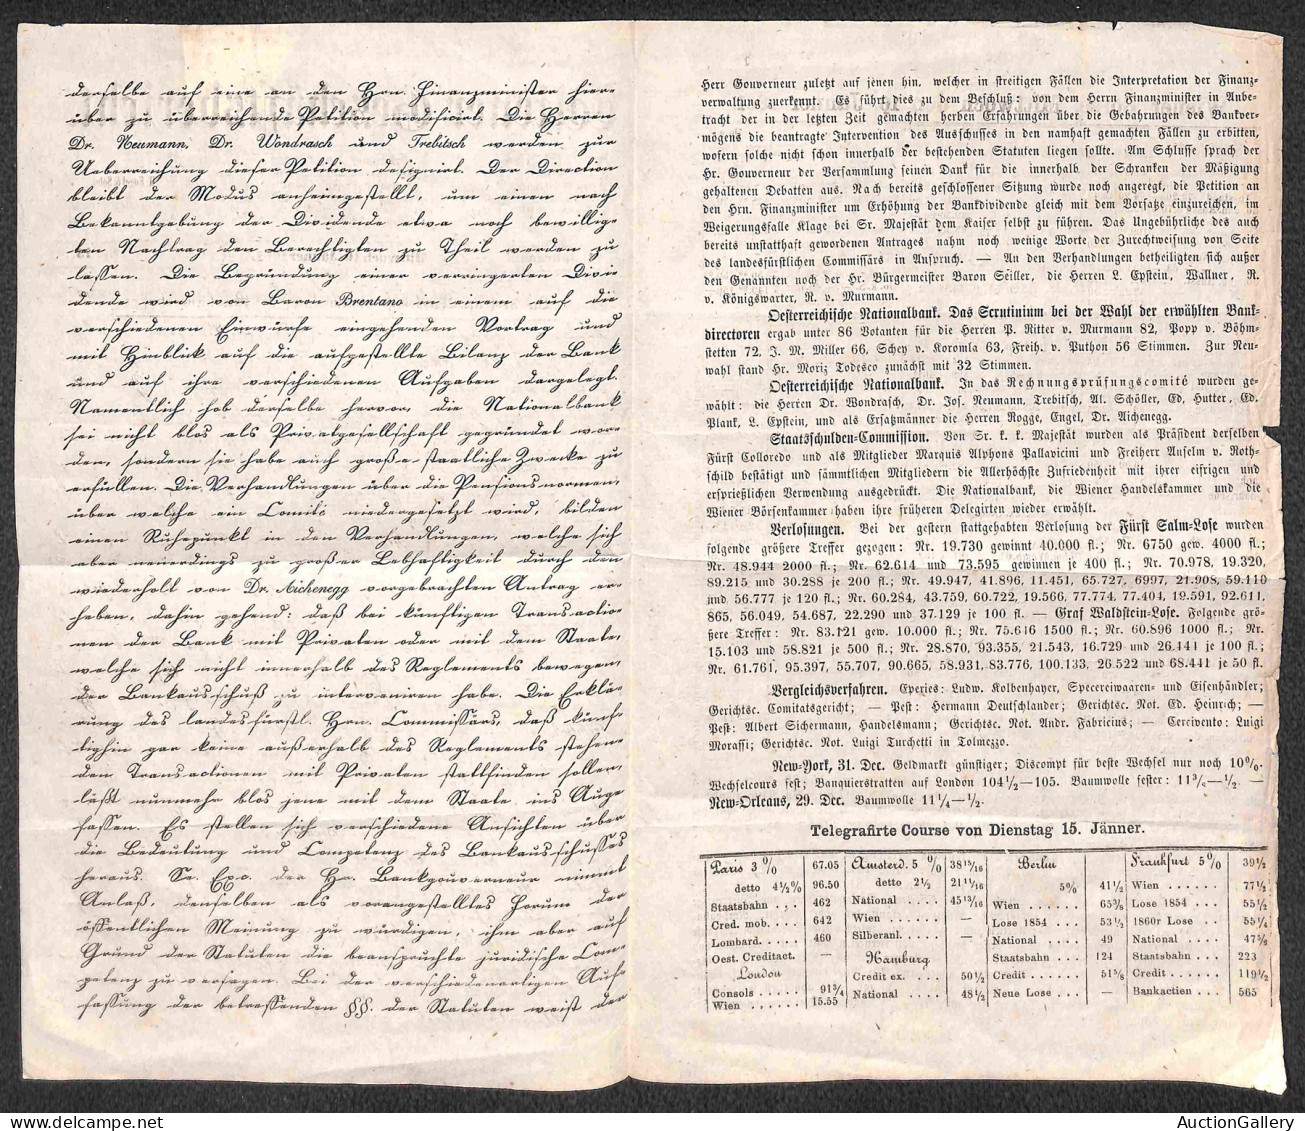 derselbe auf eine an den Hrn. Finanzminister hier-
über zu überreichende Petition modificirt. Die Herren
Dr. Neumann, Dr. Wondrasch und Trebitsch werden zur
Ueberreichung dieser Petition designirt. Der Direction
bleibt der Modus anheimgestellt, um einen nach
Bekanntgebung der Dividende etwa noch bewillig-
ten Nachtrag den Berechtigten zu Theil werden zu
lassen. Die Begründung einer verringerten Divi-
dende wird von Baron Brentano in einem auf die
verschiedenen Einwürfe eingehenden Vortrag und
mit Hinblick auf die aufgestellte Bilanz der Bank
und auf ihre verschiedenen Aufgaben dargelegt.
Namentlich hob derselbe hervor, die Nationalbank
sei nicht blos als Privatgesellschaft gegründet wor-
den, sondern sie habe auch große staatliche Zwecke zu
erfüllen. Die Verhandlungen über die Pensionsnormen,
über welche ein Comité niedergesetzt wird, bilden
einen Ruhepunkt in den Verhandlungen, welche sich
aber neuerdings zu großer Lebhaftigkeit durch den
wiederholt von Dr. Aichenegg vorgebrachten Antrag er-
heben, dahin gehend: daß bei künftigen Transactio-
nen der Bank mit Privaten oder mit dem Staate,
welche sich nicht innerhalb des Reglements bewegen,
der Bankausschuß zu interveniren habe. Die Erklä-
rung des landesfürstl. Hrn. Commissärs, daß künf-
tighin gar keine außerhalb des Reglements stehen-
den Transactionen mit Privaten stattfinden sollen,
läßt nunmehr blos jene mit dem Staate ins Auge
fassen. Es stellen sich verschiedene Ansichten über
die Bedeutung und Competenz des Bankausschusses
heraus. Se. Exc. der Hr. Bankgouverneur nimmt
Anlaß, denselben als vorangestelltes Forum der
öffentlichen Meinung zu würdigen, ihm aber auf
Grund der Statuten die beanspruchte juridische Com-
petenz zu versagen. Bei der verschiedenartigen Auf-
fassung der betreffenden §§. der Statuten weist der
Herr Gouverneur zuletzt auf jenen hin, welcher in streitigen Fällen die Interpretation der Finanz-
verwaltung zuerkennt. Es führt dies zu dem Beschluß: von dem Herrn Finanzminister in Anbe-
tracht der in der letzten Zeit gemachten herben Erfahrungen über die Gebahrungen des Bankver-
mögens die beantragte Intervention des Ausschusses in den namhaft gemachten Fällen zu erbitten,
wofern solche nicht schon innerhalb der bestehenden Statuten liegen sollte. Am Schlusse sprach der
Hr. Gouverneur der Versammlung seinen Dank für die innerhalb der Schranken der Mäßigung
gehaltenen Debatten aus. Nach bereits geschlossener Sitzung wurde noch angeregt, die Petition an
den Hrn. Finanzminister um Erhöhung der Bankdividende gleich mit dem Vorsatze einzureichen, im
Weigerungsfalle Klage bei Sr. Majestät dem Kaiser selbst zu führen. Das Ungebührliche des auch
bereits unstatthaft gewordenen Antrages nahm noch wenige Worte der Zurechtweisung von Seite
des landesfürstlichen Commissärs in Anspruch. — An den Verhandlungen betheiligten sich außer
den Genannten noch der Hr. Bürgermeister Baron Seiller, die Herren L. Epstein, Wallner, R.
v. Königswarter, R. v. Murmann.
Oesterreichische Nationalbank. Das Scrutinium bei der Wahl der erwählten Bank-
directoren ergab unter 86 Votanten für die Herren P. Ritter v. Murmann 82, Popp v. Böhm-
stetten 72, J. M. Miller 66, Schey v. Koromla 63, Freih. v. Puthon 56 Stimmen. Zur Neu-
wahl stand Hr. Moriz Todesco zunächst mit 32 Stimmen.
Oesterreichische Nationalbank. In das Rechnungsprüfungscomité wurden ge-
wählt: die Herren Dr. Wondrasch, Dr. Jos. Neumann, Trebitsch, Al. Schöller, Ed, Hutter, Ed.
Plank, L. Epstein, und als Ersatzmänner die Herren Rogge, Engel, Dr. Aichenegg.
Staatsschulden-Commission. Von Sr. k. k. Majestät wurden als Präsident derselben
Fürst Colloredo und als Mitglieder Marquis Alphons Pallavicini und Freiherr Anselm v. Roth-
schild bestätigt und sämmtlichen Mitgliedern die Allerhöchste Zufriedenheit mit ihrer eifrigen und
ersprießlichen Verwendung ausgedrückt. Die Nationalbank, die Wiener Handelskammer und die
Wiener Börsenkammer haben ihre früheren Delegirten wieder erwählt.
Verlosungen. Bei der gestern stattgehabten Verlosung der Fürst Salm-Lose wurden
folgende größere Treffer gezogen: Nr. 19.730 gewinnt 40.000 fl.; Nr. 6750 gew. 4000 fl.;
Nr. 48.944 2000 fl.; Nr. 62.614 und 73.595 gewinnen je 400 fl.; Nr. 70.978, 19.320,
89.215 und 30.288 je 200 fl.; Nr. 49.947, 41.896, 11.451, 65.727, 6997, 21.908, 59.110
und 56.777 je 120 fl.; Nr. 60.284, 43.759, 60.722, 19.566, 77.774, 77.404, 19.591, 92.611,
865, 56.049, 54.687, 22.290 und 37.129 je 100 fl. — Graf Waldstein-Lose. Folgende grö-
ßere Treffer: Nr. 83.121 gew. 10.000 fl.; Nr. 75.616 1500 fl.; Nr. 60.896 1000 fl.; Nr.
15.103 und 58.821 je 500 fl.; Nr. 28.870, 93.355, 21.543, 16.729 und 26.441 je 100 fl.;
Nr. 61.761, 95.397, 55.707, 90.665, 58.931, 83.776, 100.133, 26.522 und 68.441 je 50 fl.
Vergleichsverfahren. Eperies: Ludw. Kolbenhayer, Specereiwaaren- und Eisenhändler;
Gerichtsc. Comitatsgericht; — Pest: Hermann Deutschlander; Gerichtsc. Not. Ed. Heinrich; —
Pest: Albert Sichermann, Handelsmann; Gerichtsc. Not. Andr. Fabricius; — Cercivento: Luigi
Morassi; Gerichtsc. Not. Luigi Turchetti in Tolmezzo.
New-York, 31. Dec. Geldmarkt günstiger; Discompt für beste Wechsel nur noch 10%.
Wechselcours fest; Banquierstratten auf London 104½—105. Baumwolle fester: 11¾—½. —
New-Orleans, 29. Dec. Baumwolle 11¼—½.
Telegrafirte Course von Dienstag 15. Jänner.
Paris 3 % 67.05 Amsterd. 5 % 38 15/16 Berlin Frankfurt 5% 39½
detto 4½% 96.50 detto 2½ 21 11/16 5% 41½ Wien ...... 77½
Staatsbahn ... 462 National .... 45 13/16 Wien ..... 65⅜ Lose 1854 ... 55½
Cred. mob. .... 642 Wien ..... — Lose 1854 ... 53½ 1860r Lose .. 55¼
Lombard. .... 460 Silberanl. .... — National .... 49 National .... 47⅝
Oest. Creditact. — Hamburg Staatsbahn ... 124 Staatsbahn ... 223
London Credit ex. .... 50½ Credit ...... 51⅝ Credit ..... 119½
Consols ..... 91¾ National .... 48½ Neue Lose ... — Bankactien ... 565
Wien ..... 15.55
AuctionGallery